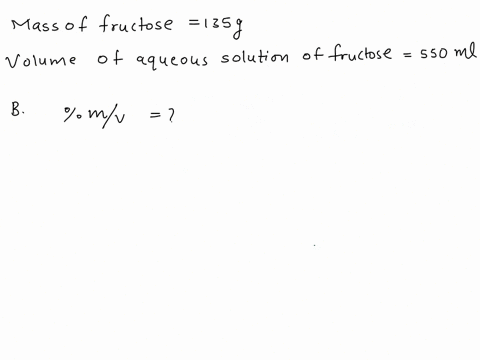 Mass of fructose = 135g
Volume of aqueous solution of fructose = 550 ml
B. % m/v = ?